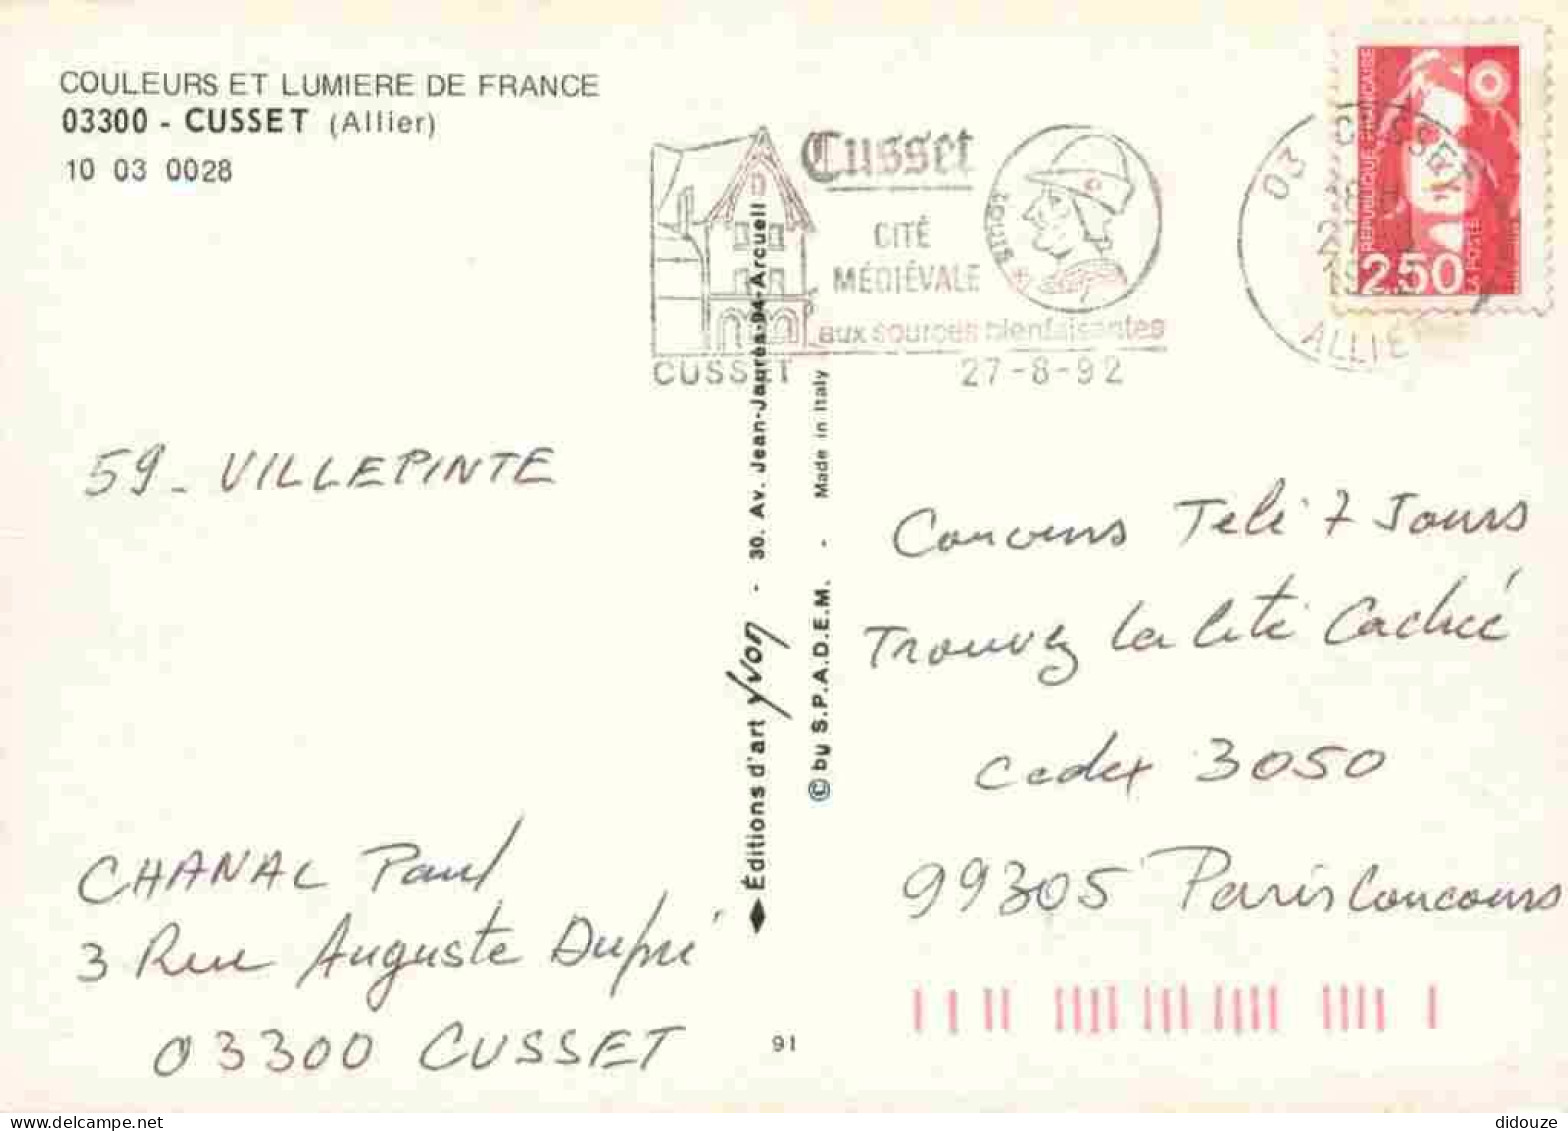 COULEURS ET LUMIERE DE FRANCE
03300 - CUSSET (Allier)
10 03 0028
Cusset
CITÉ
MÉDIÉVALE
aux sources bienfaisantes
Louis XI
CUSSET 27-8-92
03 CUSSET
ALLIE
REPUBLIQUE FRANÇAISE
2,50
LA POSTE
59 - VILLEPINTE
CHANAL Paul
3 Rue Auguste Dupré
03300 CUSSET
◆ Éditions d'art yvon - 30. Av. Jean-Jaurès-94-Arcueil
© by S.P.A.D.E.M. - Made in Italy
91
Concours Télé 7 Jours
Trouvez la Cité Cachée
Cedex 3050
99305 Paris Concours
didouze